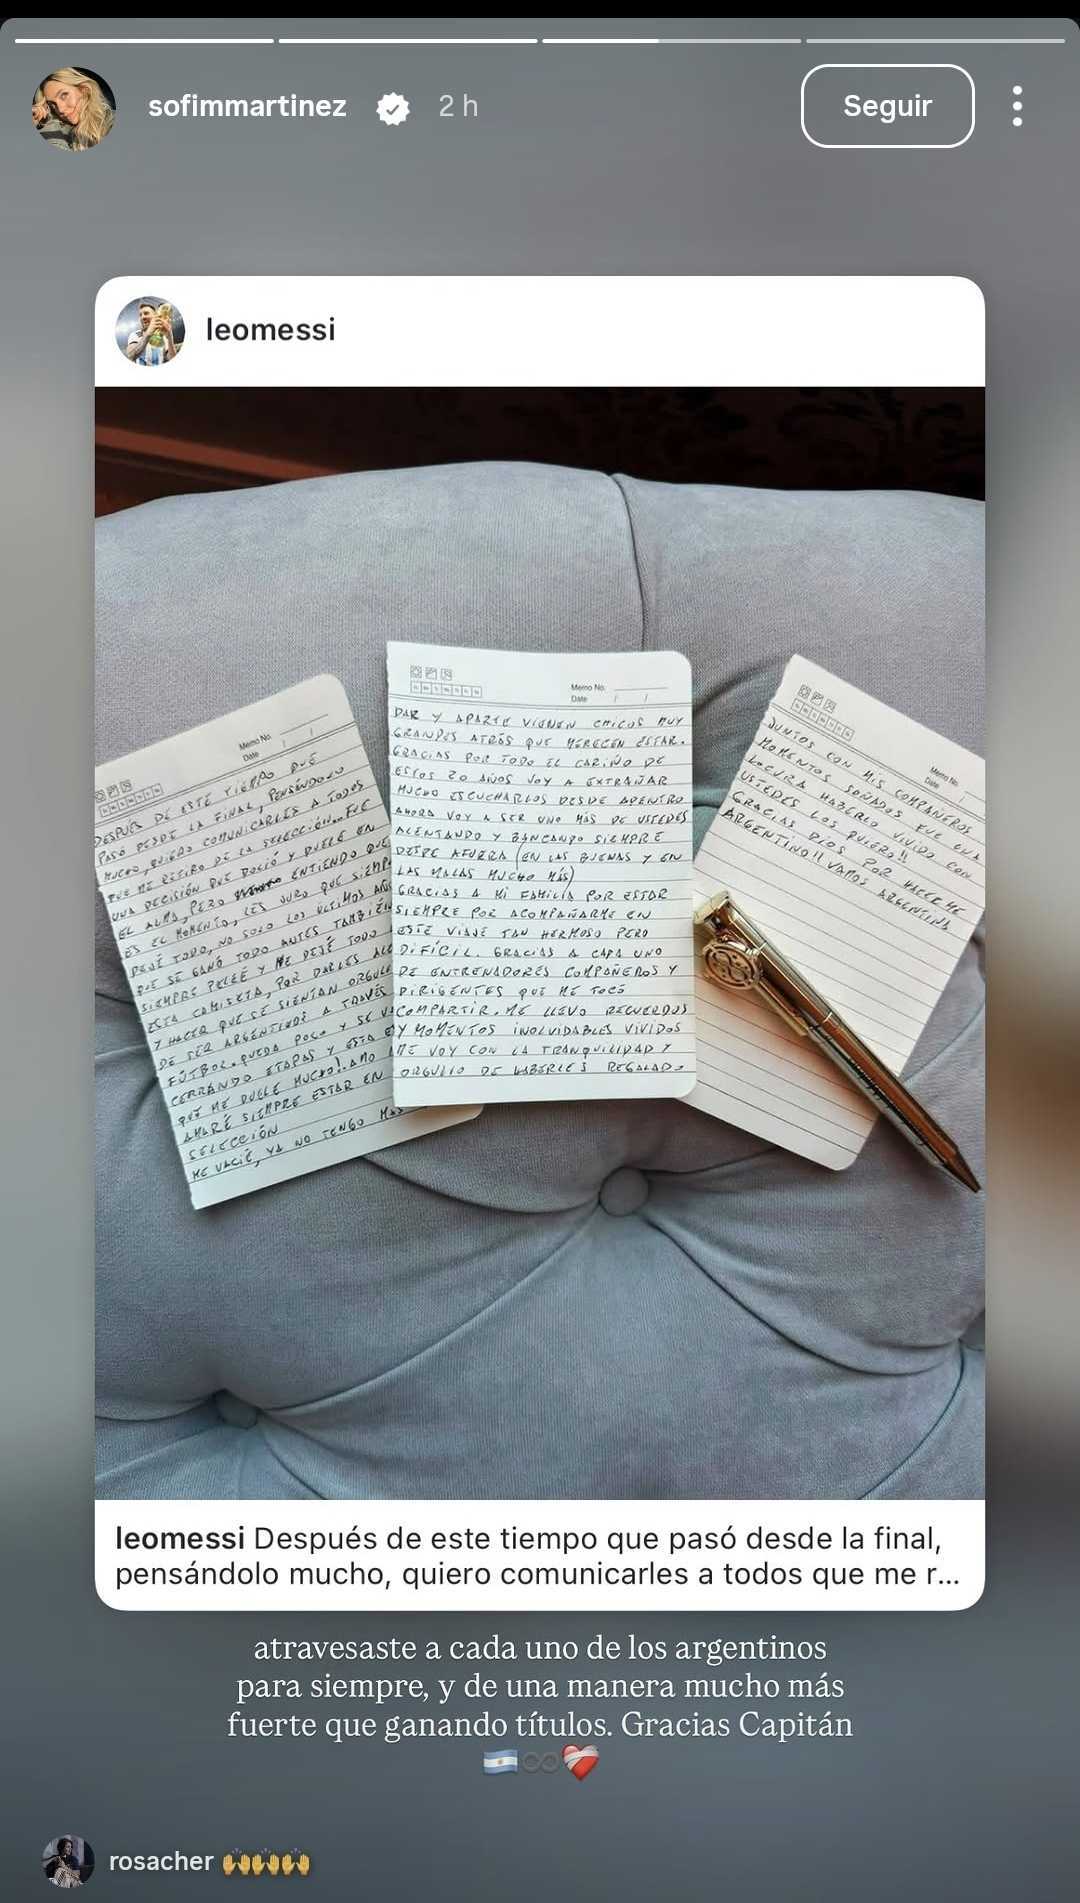 sofimmartinez 2 h Seguir
leomessi
Memo No.
Date / /
DESPUÉS DE ESTE TIEMPO QUE
PASÓ DESDE LA FINAL, PENSÁNDOLO
MUCHO, QUIERO COMUNICARLES A TODOS
QUE ME RETIRO DE LA SELECCIÓN... FUE
UNA DECISIÓN QUE DOLIÓ Y DUELE EN
EL ALMA, PERO ENTIENDO QUE
ES EL MOMENTO, LES JURO QUE SIEMPRE
DEJÉ TODO, NO SOLO LOS ÚLTIMOS AÑOS
QUE SE GANÓ TODO ANTES TAMBIÉN
SIEMPRE PELEÉ Y ME DEJÉ TODO
ESTA CAMISETA, POR DARLES ALE
Y HACER QUE SE SIENTAN ORGULL
DE SER ARGENTINOS A TRAVÉS
FÚTBOL. QUEDA POCO Y SE VA
CERRANDO ETAPAS Y ESTA
QUE ME DUELE MUCHO!. AMO
AMARÉ SIEMPRE ESTAR EN
SELECCIÓN
ME VACIÉ, YA NO TENGO MAS
Memo No.
Date / /
DAR Y APARTE VIENEN CHICOS MUY
GRANDES ATRÁS QUE MERECEN ESTAR.
GRACIAS POR TODO EL CARIÑO DE
ESTOS 20 AÑOS VOY A EXTRAÑAR
MUCHO ESCUCHARLOS DESDE ADENTRO
AHORA VOY A SER UNO MÁS DE USTEDES
ALENTANDO Y BANCANDO SIEMPRE
DESDE AFUERA (EN LAS BUENAS Y EN
LAS MALAS MUCHO MÁS)
GRACIAS A MI FAMILIA POR ESTAR
SIEMPRE POR ACOMPAÑARME EN
ESTE VIAJE TAN HERMOSO PERO
DIFÍCIL. GRACIAS A CADA UNO
DE ENTRENADORES COMPAÑEROS Y
DIRIGENTES QUE ME TOCÓ
COMPARTIR. ME LLEVO RECUERDOS
Y MOMENTOS INOLVIDABLES VIVIDOS
ME VOY CON LA TRANQUILIDAD Y
ORGULLO DE HABERLES REGALADO
Memo No.
Date / /
JUNTOS CON MIS COMPAÑEROS
MOMENTOS SOÑADOS FUE UNA
LOCURA HABERLO VIVIDO CON
USTEDES LOS QUIERO!!
GRACIAS DIOS POR HACERME
ARGENTINO!! VAMOS ARGENTINA
leomessi Después de este tiempo que pasó desde la final,
pensándolo mucho, quiero comunicarles a todos que me r...
atravesaste a cada uno de los argentinos
para siempre, y de una manera mucho más
fuerte que ganando títulos. Gracias Capitán
🇦🇷♾️❤️‍🩹
rosacher 🙌🙌🙌